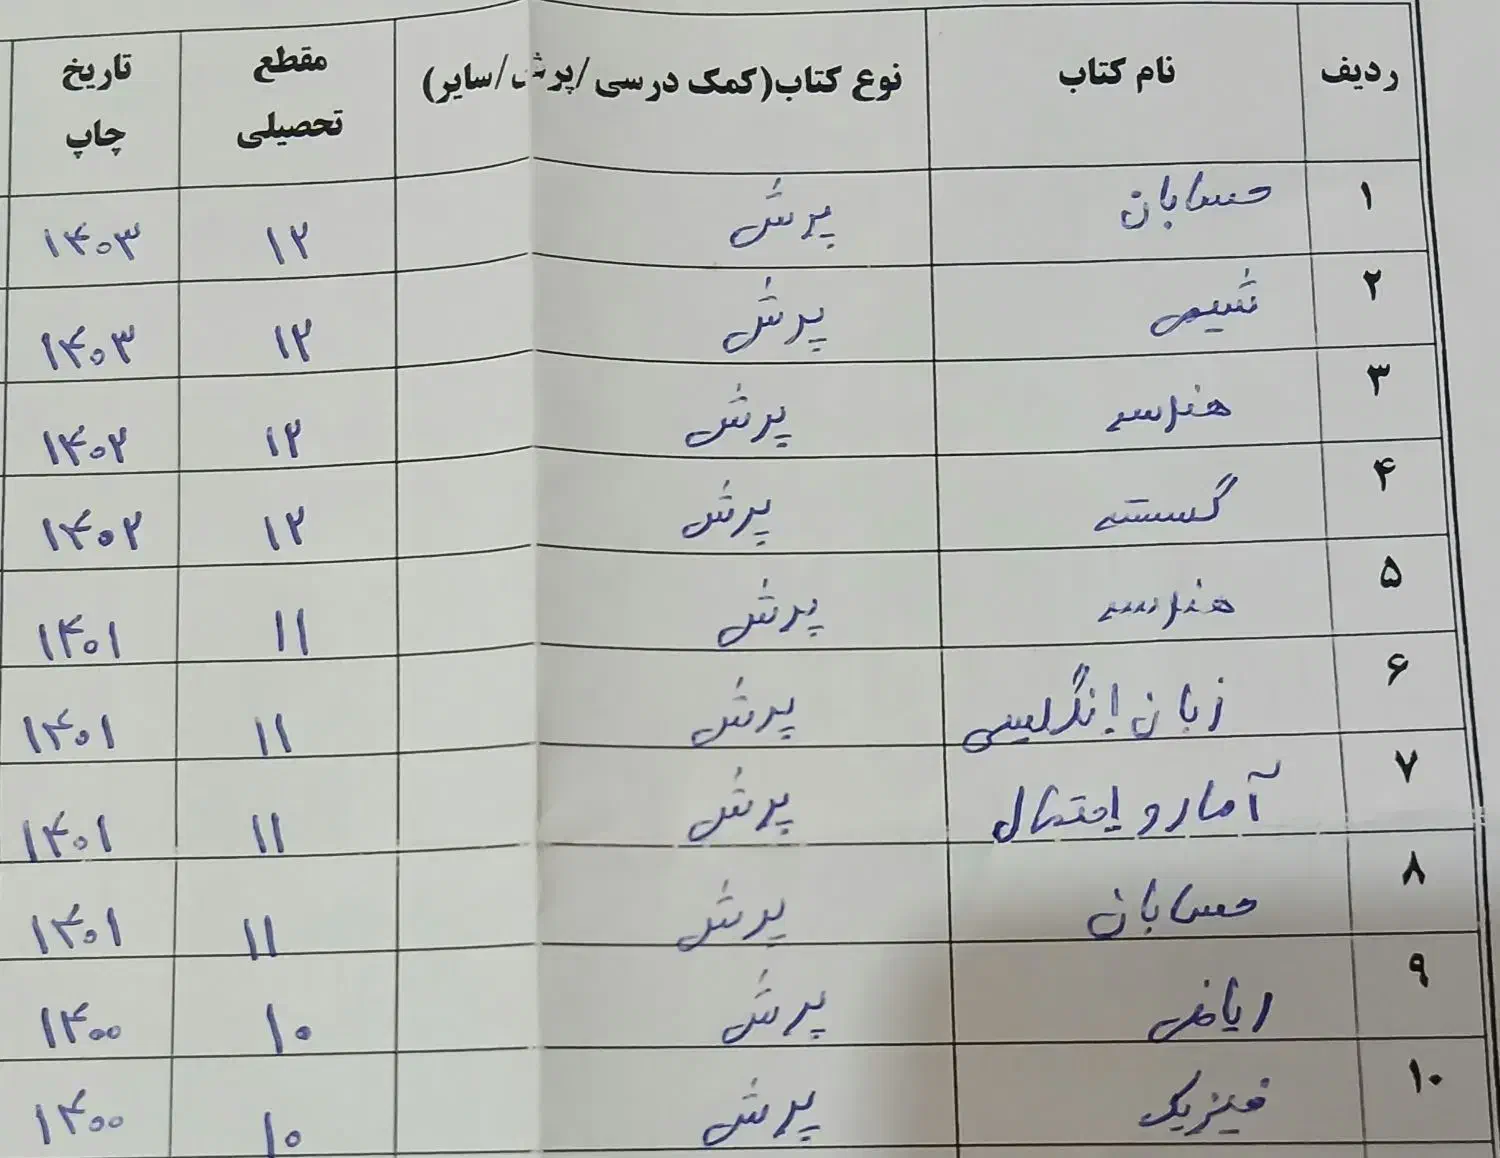 ردیف نام کتاب نوع کتاب(کمک درسی/پرش/سایر) مقطع تحصیلی تاریخ چاپ
۱ حسابان پرش ۱۲ ۱۴۰۳
۲ شیمی پرش ۱۲ ۱۴۰۳
۳ هندسه پرش ۱۲ ۱۴۰۲
۴ گسسته پرش ۱۲ ۱۴۰۲
۵ هندسه پرش ۱۱ ۱۴۰۱
۶ زبان انگلیسی پرش ۱۱ ۱۴۰۱
۷ آمار و احتمال پرش ۱۱ ۱۴۰۱
۸ حسابان پرش ۱۱ ۱۴۰۱
۹ ریاضی پرش ۱۰ ۱۴۰۰
۱۰ فیزیک پرش ۱۰ ۱۴۰۰